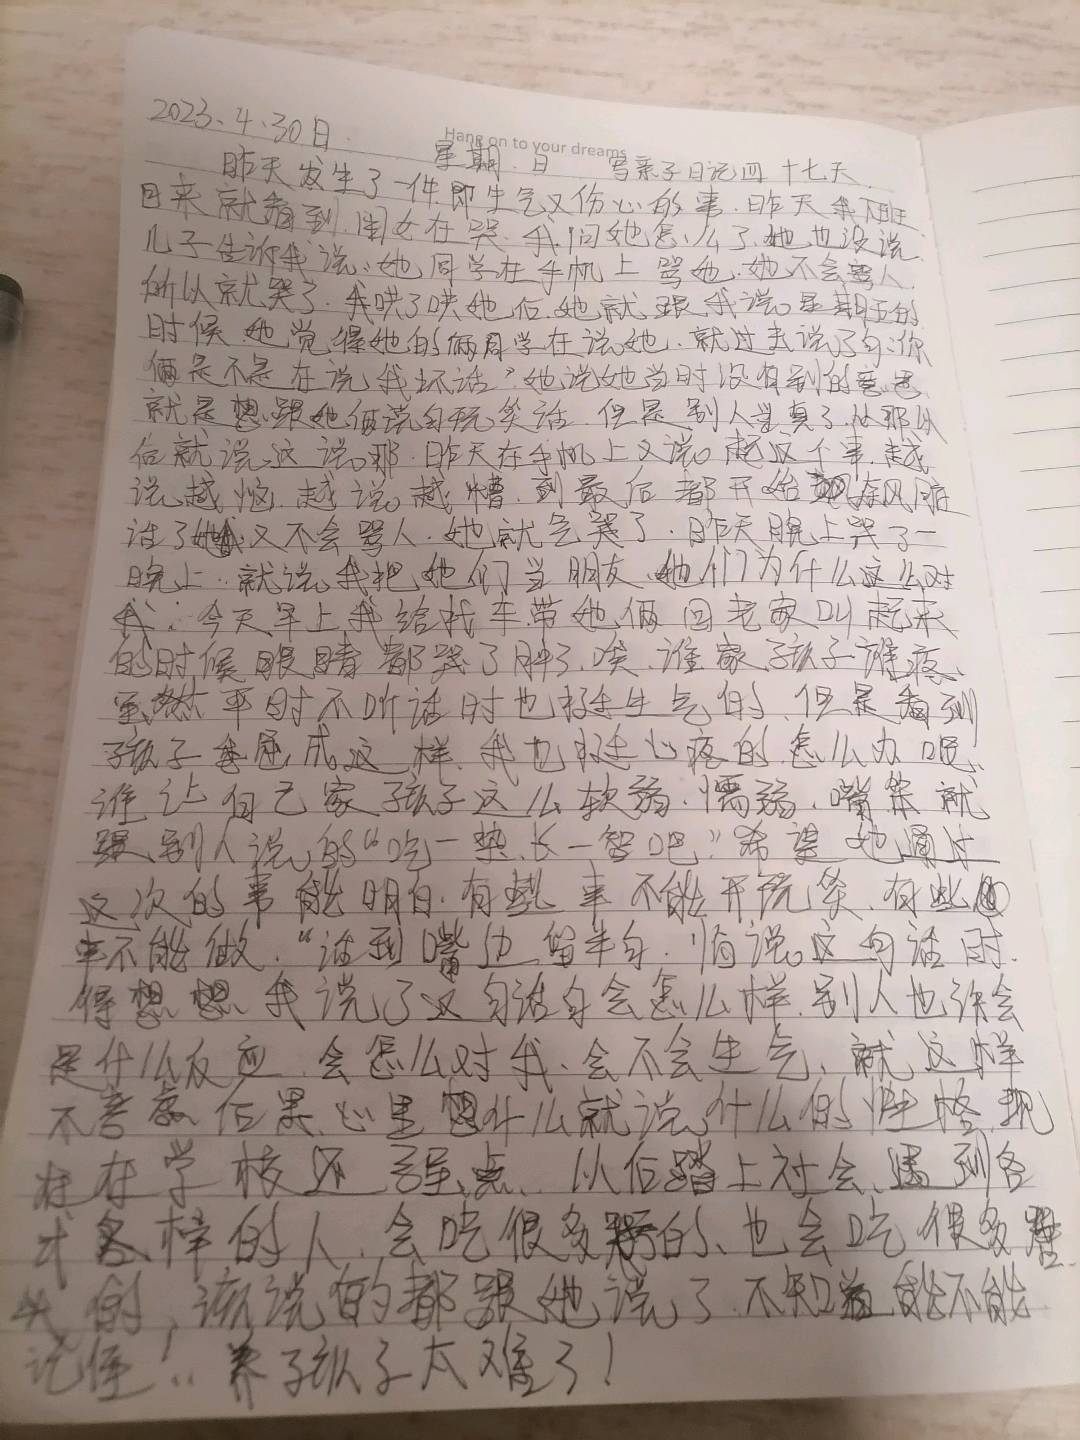 Hang on to your dreams
2023、4、30日. 星期.日 写亲子日记四十七天.
昨天发生了一件即生气又伤心的事.昨天我下班
回来就看到.闺女在哭.我问她怎么了.她也没说
儿子告诉我说:她同学在手机上骂她.她不会骂人.
所以就哭了.我哄了哄她后.她就跟我说.星期五的
时候.她觉得她的俩同学在说她.就过去说了句:你
俩是不是在说我坏话”她说她当时没有别的意思
就是想跟她俩说句玩笑话.但是别人当真了.从那以
后就说这说那.昨天在手机上又说起这个事.越
说越恼.越说越糟.到最后都开始 脏
话了她又不会骂人.她就气哭了.昨天晚上哭了一
晚上..就说我把她们当朋友.她们为什么这么对
我:今天早上我给找车带她俩回老家叫起来
的时候眼睛都哭了肿了.唉.谁家孩子谁疼.
虽然平时不听话时也挺生气的.但是看到
孩子委屈成这样.我也挺心疼的.怎么办呢.
谁让自己家孩子这么软弱.懦弱.嘴笨就
跟别人说的“吃一垫.长一智吧”希望她通过
这次的事能明白.有些事不能开玩笑.有些
事不能做.“话到嘴边留半句.你说这句话时.
得想想.我说了这句话自会怎么样.别人也许会
是什么反应.会怎么对我.会不会生气.就这样
不考虑后果.心里想什么就说什么的性格.现
在在学校还强点.以后踏上社会.遇到各
式各样的人.会吃很多 的、也会吃很多
的,该说的都跟她说了.不知道能不能
记住!..养孩子太难了!